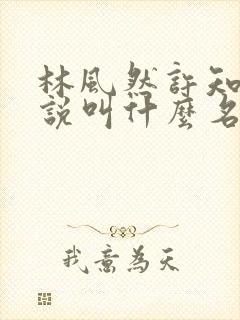 林風然許知
說叫什麼名
我意為天